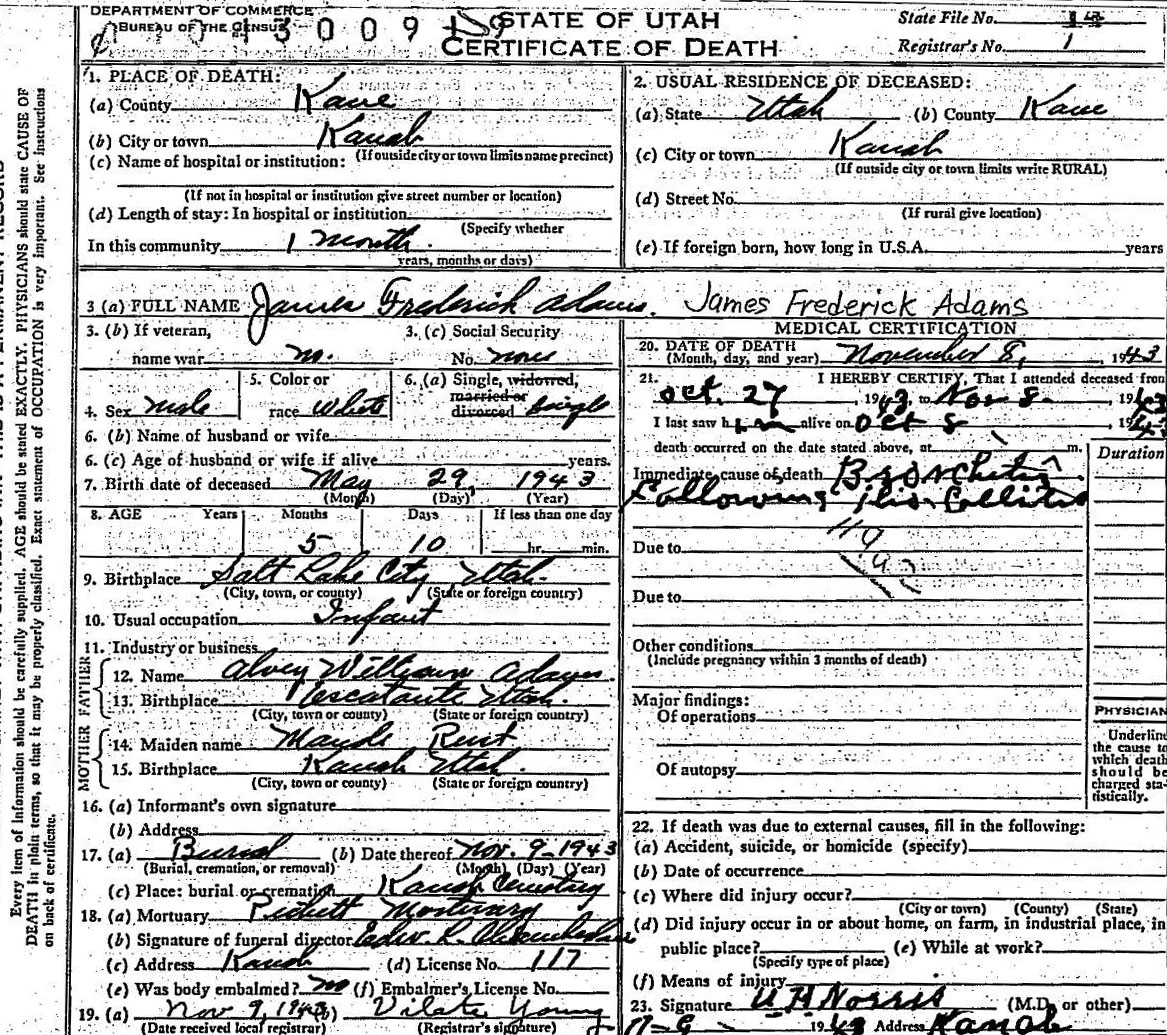 DEPARTMENT OF COMMERCE
BUREAU OF THE CENSUS
STATE OF UTAH
CERTIFICATE OF DEATH
State File No.
Registrar's No. 1
1. PLACE OF DEATH:
(a) County Kane
(b) City or town Kanab
(If outside city or town limits name precinct)
(c) Name of hospital or institution:
(If not in hospital or institution give street number or location)
(d) Length of stay: In hospital or institution
(Specify whether
In this community 1 month.
years, months or days)
2. USUAL RESIDENCE OF DECEASED:
(a) State Utah (b) County Kane
(c) City or town Kanab
(If outside city or town limits write RURAL)
(d) Street No.
(If rural give location)
(e) If foreign born, how long in U.S.A. years
3 (a) FULL NAME James Frederick Adams. James Frederick Adams
3. (b) If veteran, name war no.
3. (c) Social Security No. none
4. Sex male
5. Color or race white
6. (a) Single, widowed, married or divorced single
6. (b) Name of husband or wife
6. (c) Age of husband or wife if alive years.
7. Birth date of deceased May 29, 1943
(Month) (Day) (Year)
8. AGE Years Months Days If less than one day
5 10 hr. min.
9. Birthplace Salt Lake City Utah.
(City, town, or county) (State or foreign country)
10. Usual occupation Infant
11. Industry or business
FATHER
12. Name Alvey William Adams
13. Birthplace Escalante Utah.
(City, town or county) (State or foreign country)
MOTHER
14. Maiden name Maude
15. Birthplace Kanab Utah.
(City, town or county) (State or foreign country)
16. (a) Informant's own signature
(b) Address
17. (a) Burial (b) Date thereof Nov. 9-1943
(Burial, cremation, or removal) (Month) (Day) (Year)
(c) Place: burial or cremation Kanab Cemetery
18. (a) Mortuary Mortuary
(b) Signature of funeral director Edw. L.
(c) Address Kanab (d) License No. 117
(e) Was body embalmed? no (f) Embalmer's License No.
19. (a) Nov 9, 1943 (b) Vilate Young
(Date received local registrar) (Registrar's signature)
MEDICAL CERTIFICATION
20. DATE OF DEATH
(Month, day, and year) November 8, 1943
21. I HEREBY CERTIFY, That I attended deceased from
Oct. 27, 1943, to Nov 8 1943
I last saw him alive on Oct 8 1943
death occurred on the date stated above, at m.
Duration
Immediate cause of death Bronchitis
Following
Due to
Due to
Other conditions
(Include pregnancy within 3 months of death)
Major findings:
Of operations
Of autopsy
PHYSICIAN
Underline
the cause to
which death
should be
charged sta-
tistically.
22. If death was due to external causes, fill in the following:
(a) Accident, suicide, or homicide (specify)
(b) Date of occurrence
(c) Where did injury occur?
(City or town) (County) (State)
(d) Did injury occur in or about home, on farm, in industrial place, in
public place? (e) While at work?
(Specify type of place)
(f) Means of injury
23. Signature U H Norris (M.D. or other)
11-9 1943 Address Kanab
Every item of information should be carefully supplied. AGE should be stated EXACTLY. PHYSICIANS should state CAUSE OF
DEATH in plain terms, so that it may be properly classified. Exact statement of OCCUPATION is very important. See instructions
on back of certificate.